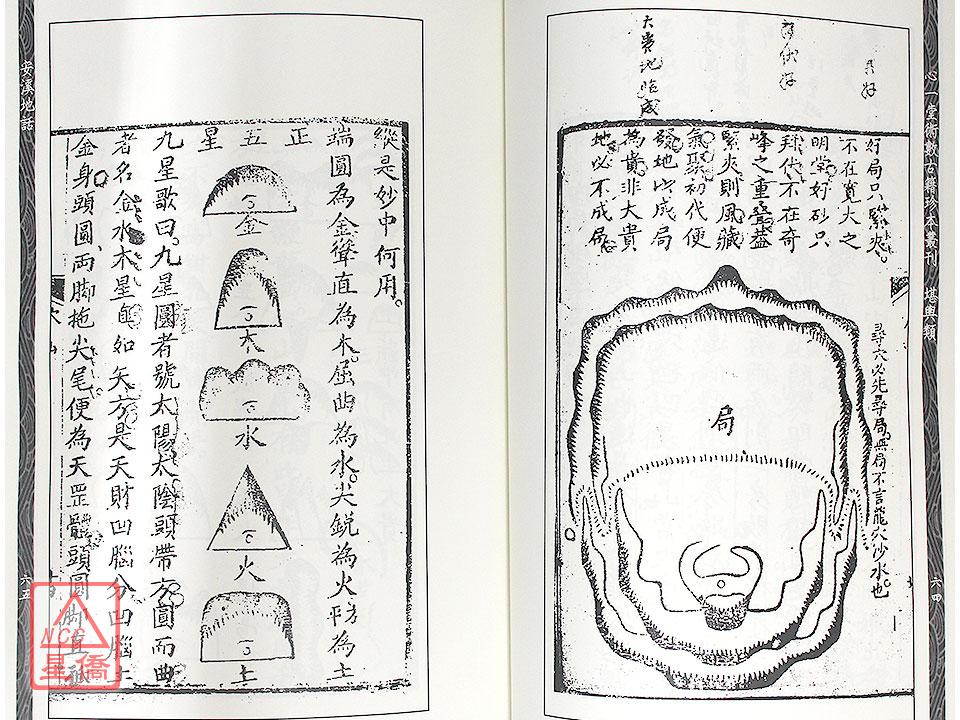 心一堂術數古籍珍本叢刊 堪輿類
六四
好局只緊夾
不在寬大之
明堂好砂只
拜伏不在奇
峰之重叠蓋
緊夾則風藏
氣聚初代便
發地以成局
為貴非大貴
地必不成局
大貴地臨成
尋穴必先尋局無局不言龍穴沙水也
局
縱是妙中何用
端圓為金聳直為木屈曲為水尖銳為火平方為土
正五星
金
木
水
火
土
九星歌曰九星圓者號太陽太陰頭帶方圓而曲
者名金水木星直如矢方是天財凹腦分凹腦上
金身頭圓兩脚拖尖尾便為天罡體頭圓脚直
安溪地話
六五
NCC
星僑